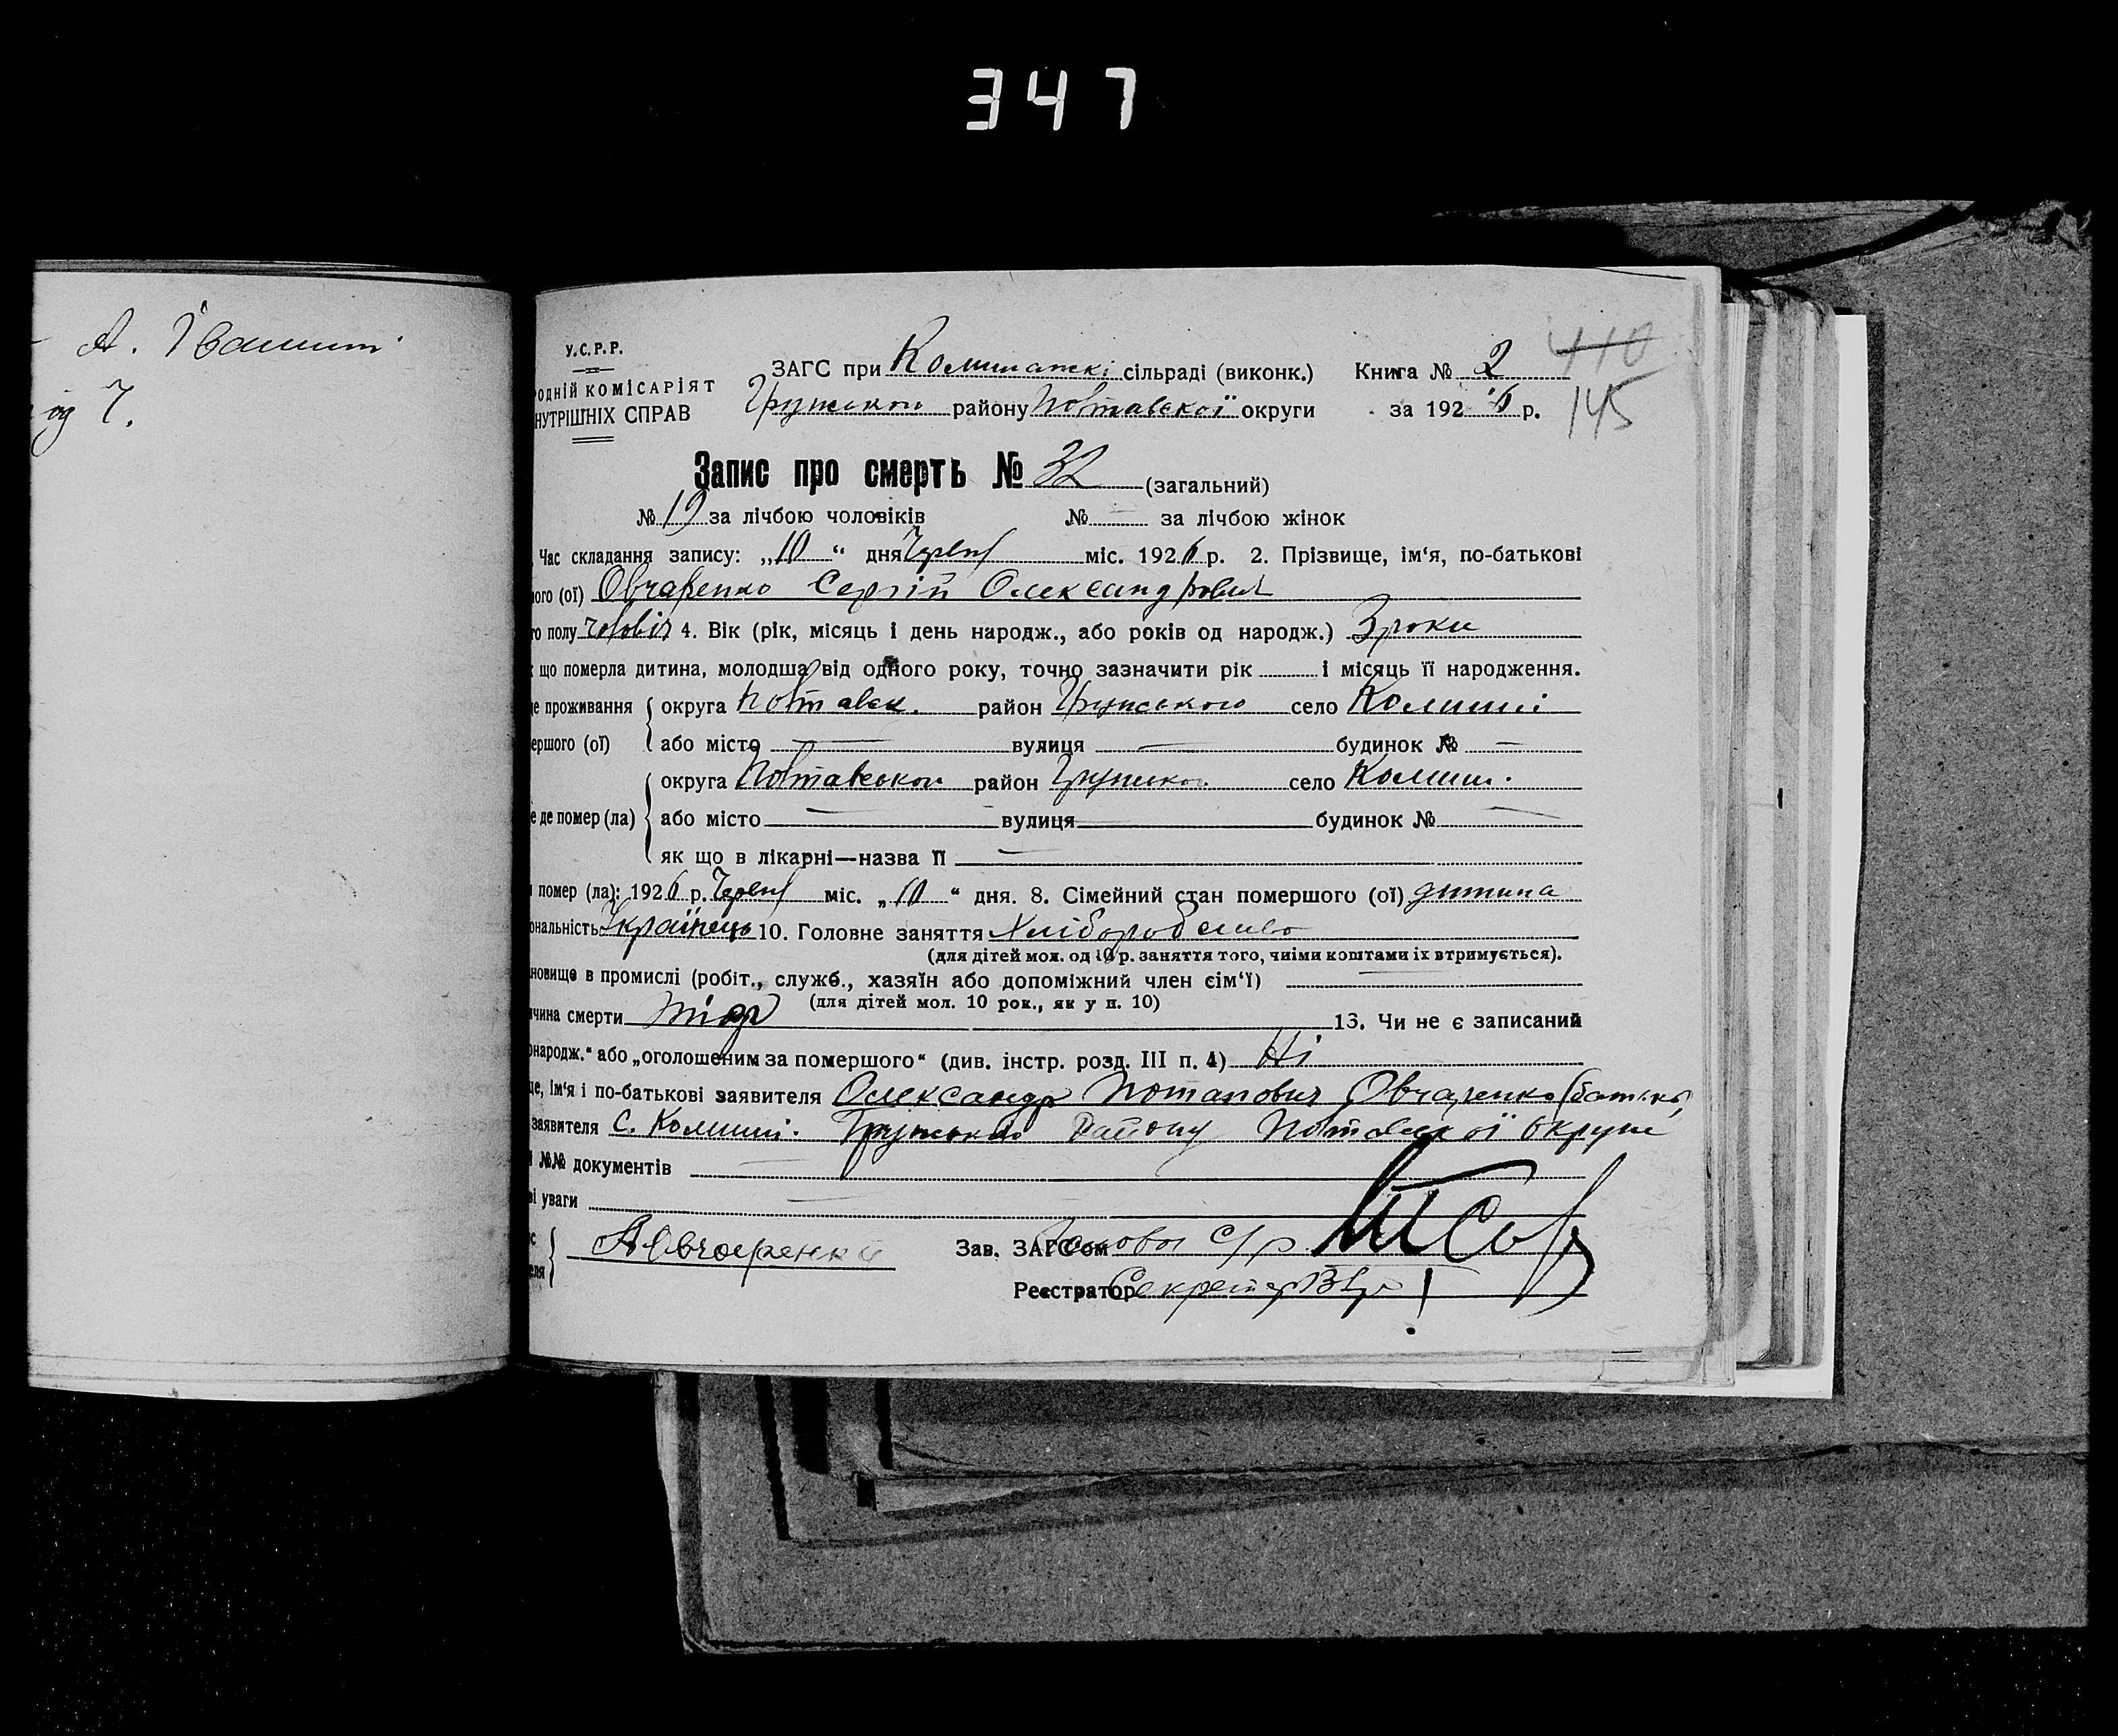 347
А. Івашит
У.С.Р.Р.
ЗАГС при Комишатскі сільраді (виконк.) Книга № 2
410
ОДНІЙ КОМІСАРІЯТ
НУТРІШНІХ СПРАВ
Грунського району Полтавської округи за 1926 р.
145
Запис про смерть № 32 (загальний)
№ 19 за лічбою чоловіків № — за лічбою жінок
Час складання запису: „10" дня Червн міс. 1926 р. 2. Прізвище, ім'я, по-батькові
ого (ої) Овчаренко Сергій Олександрович
го полу чоловіч 4. Вік (рік, місяць і день народж., або років од народж.) 3 роки
що померла дитина, молодша від одного року, точно зазначити рік і місяць її народження.
е проживання округа Полтавск. район Грунського село Комиші
ершого (ої) або місто — вулиця — будинок № —
округа Полтавської район Грунсько село Комиш.
е де помер (ла) або місто — вулиця будинок № —
як що в лікарні—назва її —
помер (ла): 1926 р. Червн міс. „10" дня. 8. Сімейний стан помершого (ої) дитина
ональність Українець 10. Головне заняття Хліборобство
(для дітей мол. од 10 р. заняття того, чиїми коштами їх втримується).
новище в промислі (робіт., служб., хазяїн або допоміжний член сім'ї) —
(для дітей мол. 10 рок., як у п. 10)
чина смерти 13. Чи не є записаний
онародж." або „оголошеним за помершого" (див. інстр. розд. III п. 4) Ні
ще, ім'я і по-батькові заявителя Олександр Потапович Овчаренко (батько)
заявителя С. Комиші. Грунського Району Полтавської Округи
№№ документів —
ві уваги —
А Овчаренко Зав. ЗАГСом Голова С/р
Реєстратор Секретар